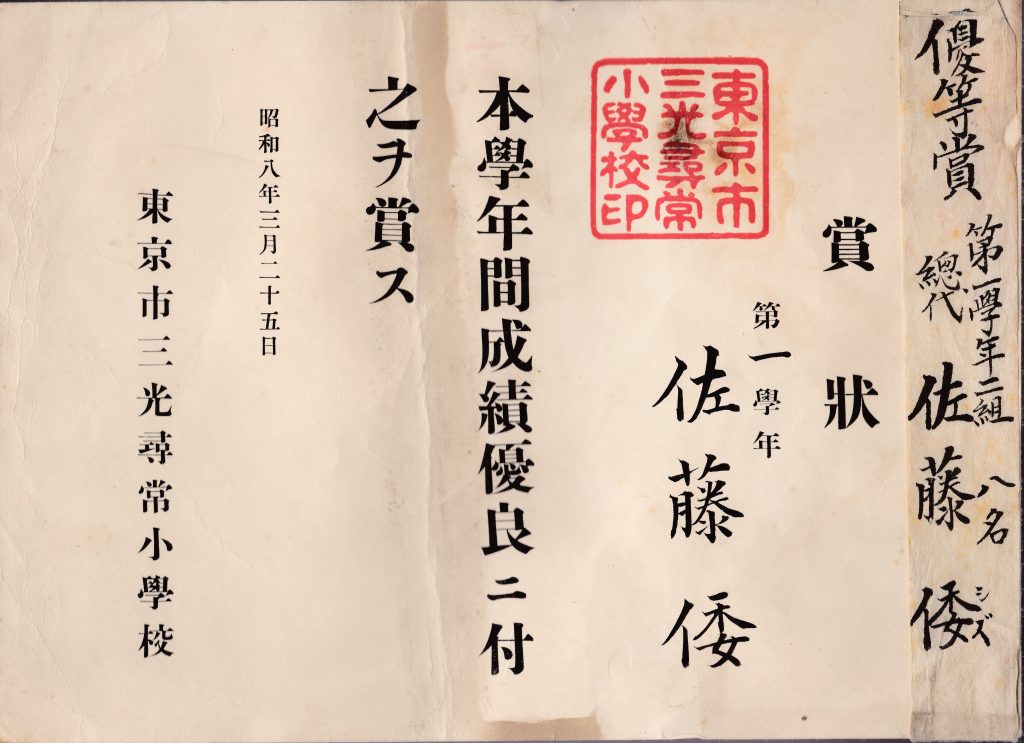 優等賞
第一學年二組
八名
總代
佐藤倭
シズ
賞狀
第一學年
佐藤倭
東京市
三光尋常
小學校印
本學年間成績優良ニ付
之ヲ賞ス
昭和八年三月二十五日
東京市三光尋常小學校